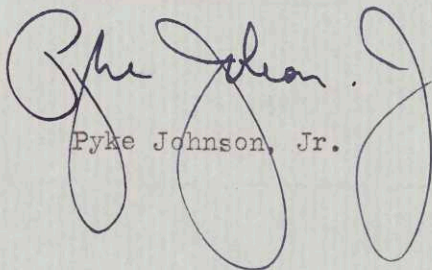 Pyke Johnson. J
Pyke Johnson, Jr.